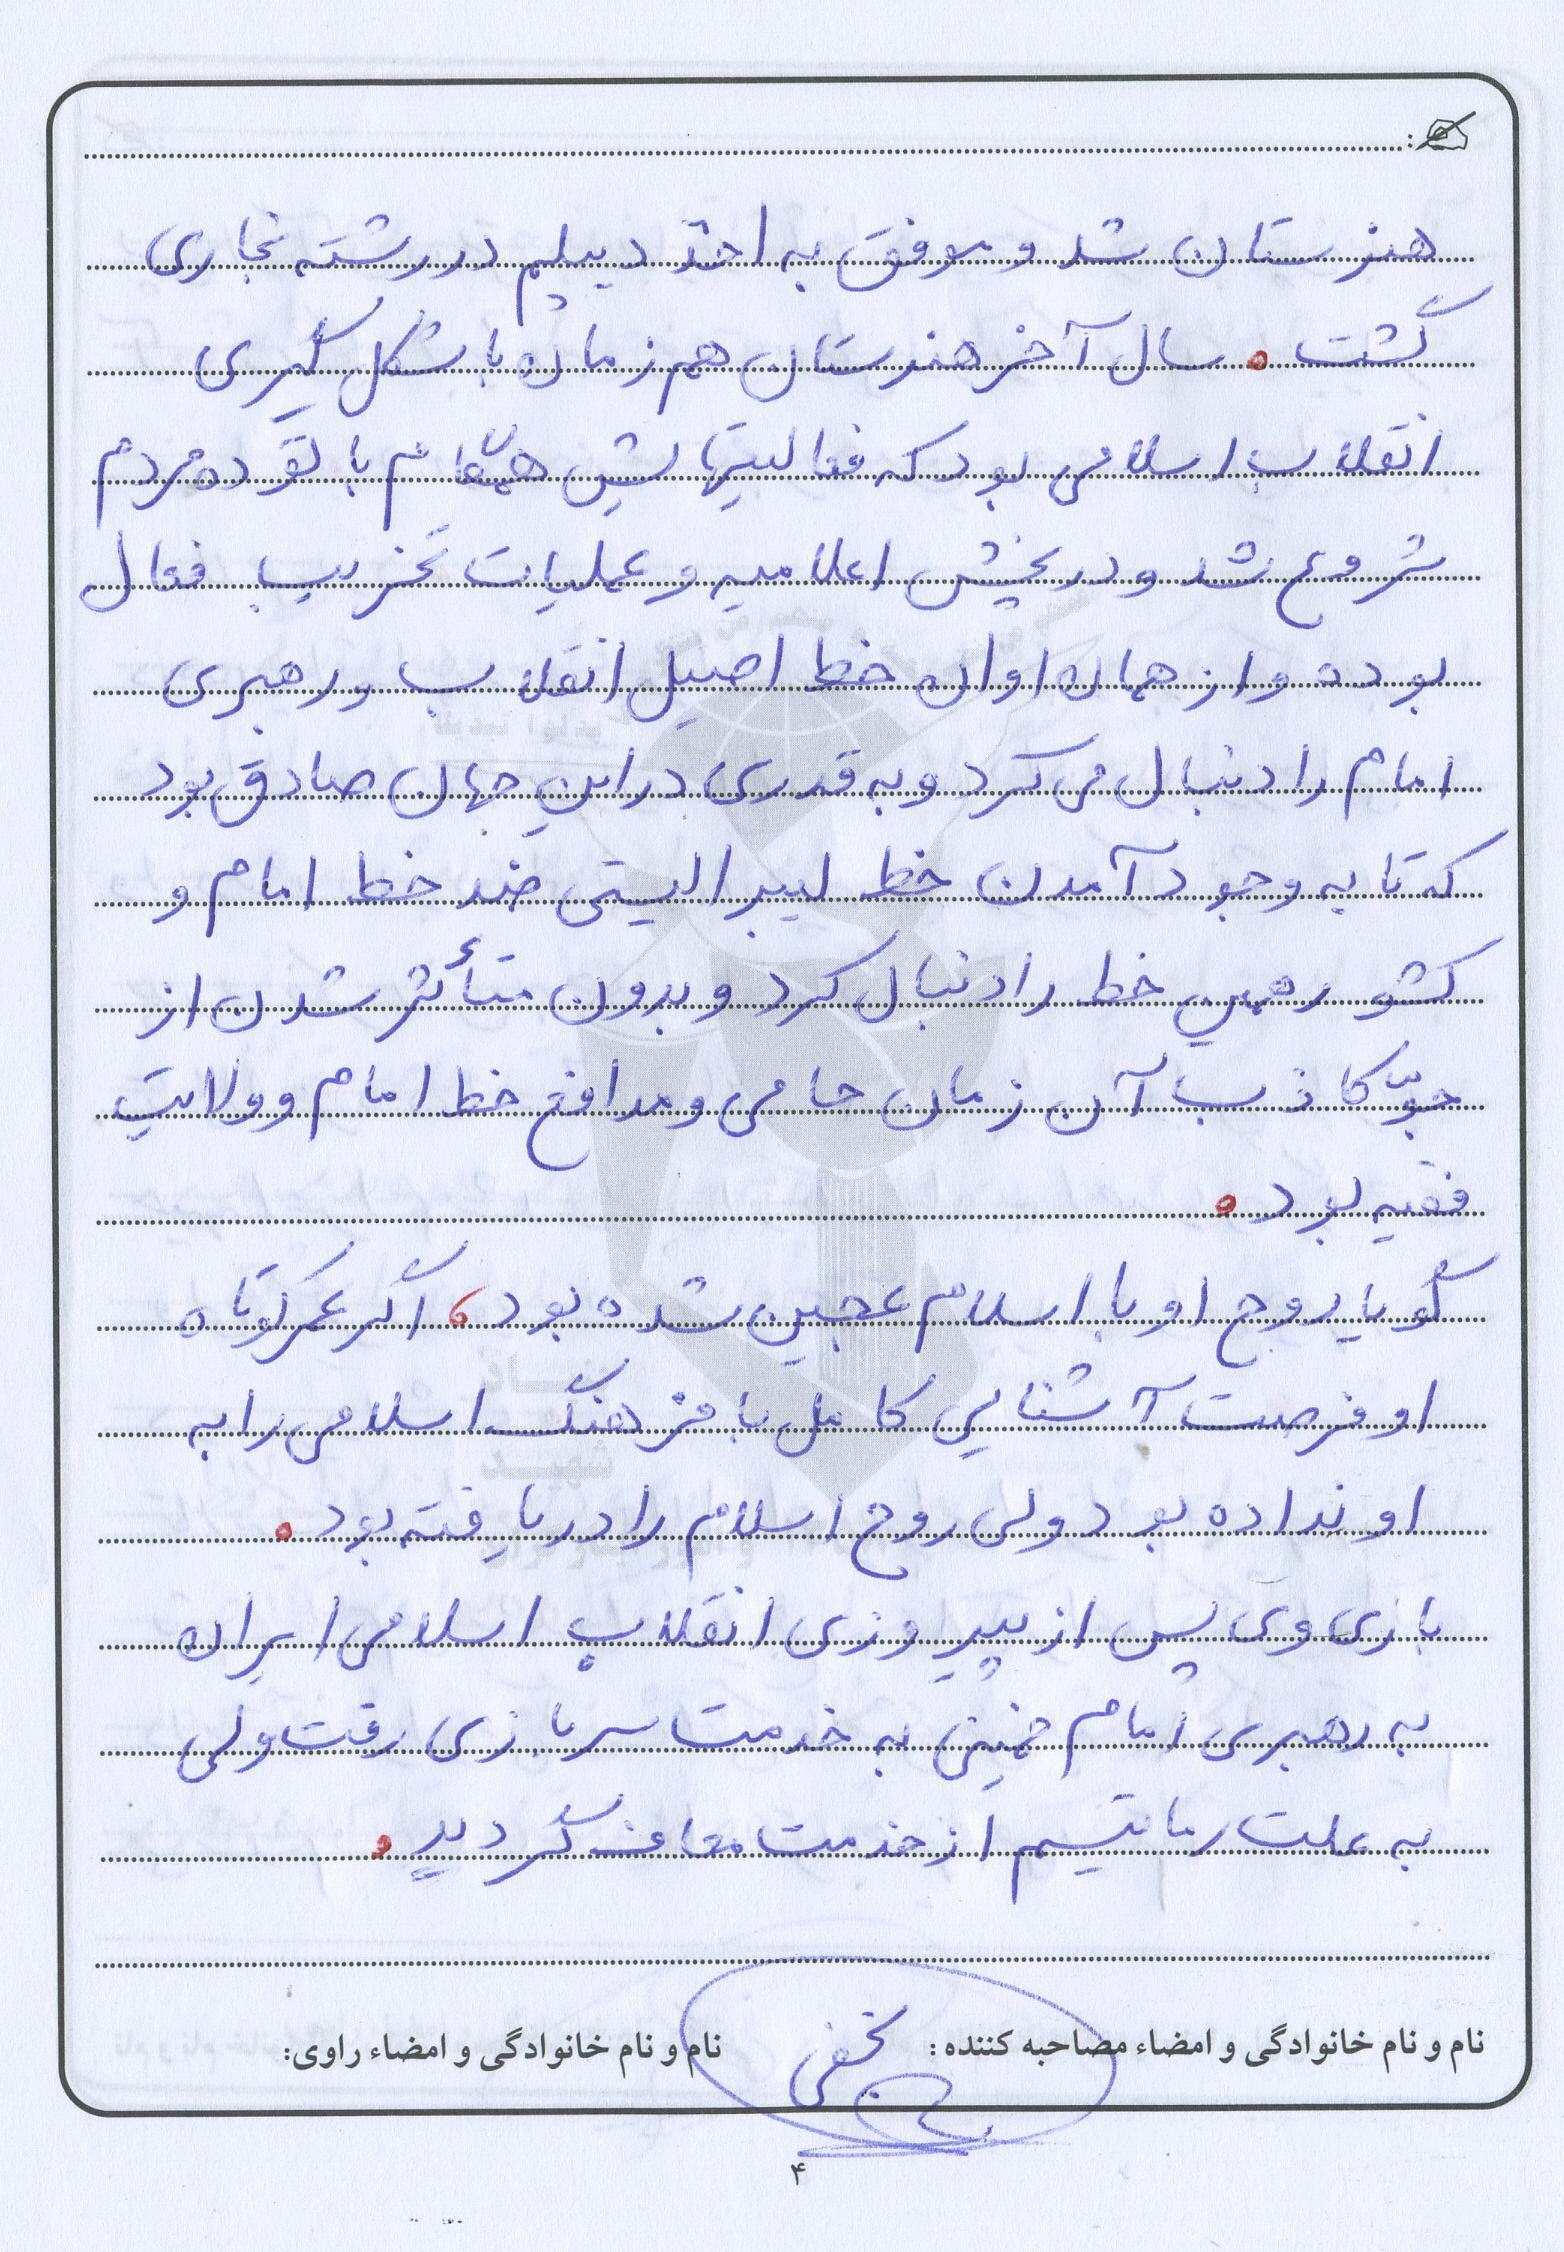 هنرستان شد و موفق به اخذ دیپلم در رشته نجاری
گشت. سال آخر هنرستان هم زمان با شکل گیری
انقلاب اسلامی بود که فعالیتهایش همگام با توده مردم
شروع شد و در پخش اعلامیه و عملیات تخریب فعال
بوده و از همان اوان خط اصیل انقلاب و رهبری
امام را دنبال می کرد و به قدری در این جهان صادق بود
که تا به وجود آمدن خط لیبرالیستی ضد خط امام و
کشور همین خط را دنبال کرد و بدون متأثر شدن از
جوّ کاذب آن زمان حامی و مدافع خط امام و ولایت
فقیه بود.
گویا روح او با اسلام عجین شده بود، اگر عمر کوتاه
او فرصت آشنایی کامل با فرهنگ اسلامی را به
او نداده بود ولی روح اسلام را دریافته بود.
باری وی پس از پیروزی انقلاب اسلامی ایران
به رهبری امام خمینی به خدمت سربازی رفت ولی
به علت رماتیسم از خدمت معاف گردید.
نام و نام خانوادگی و امضاء مصاحبه کننده: نجفی
نام و نام خانوادگی و امضاء راوی:
۴